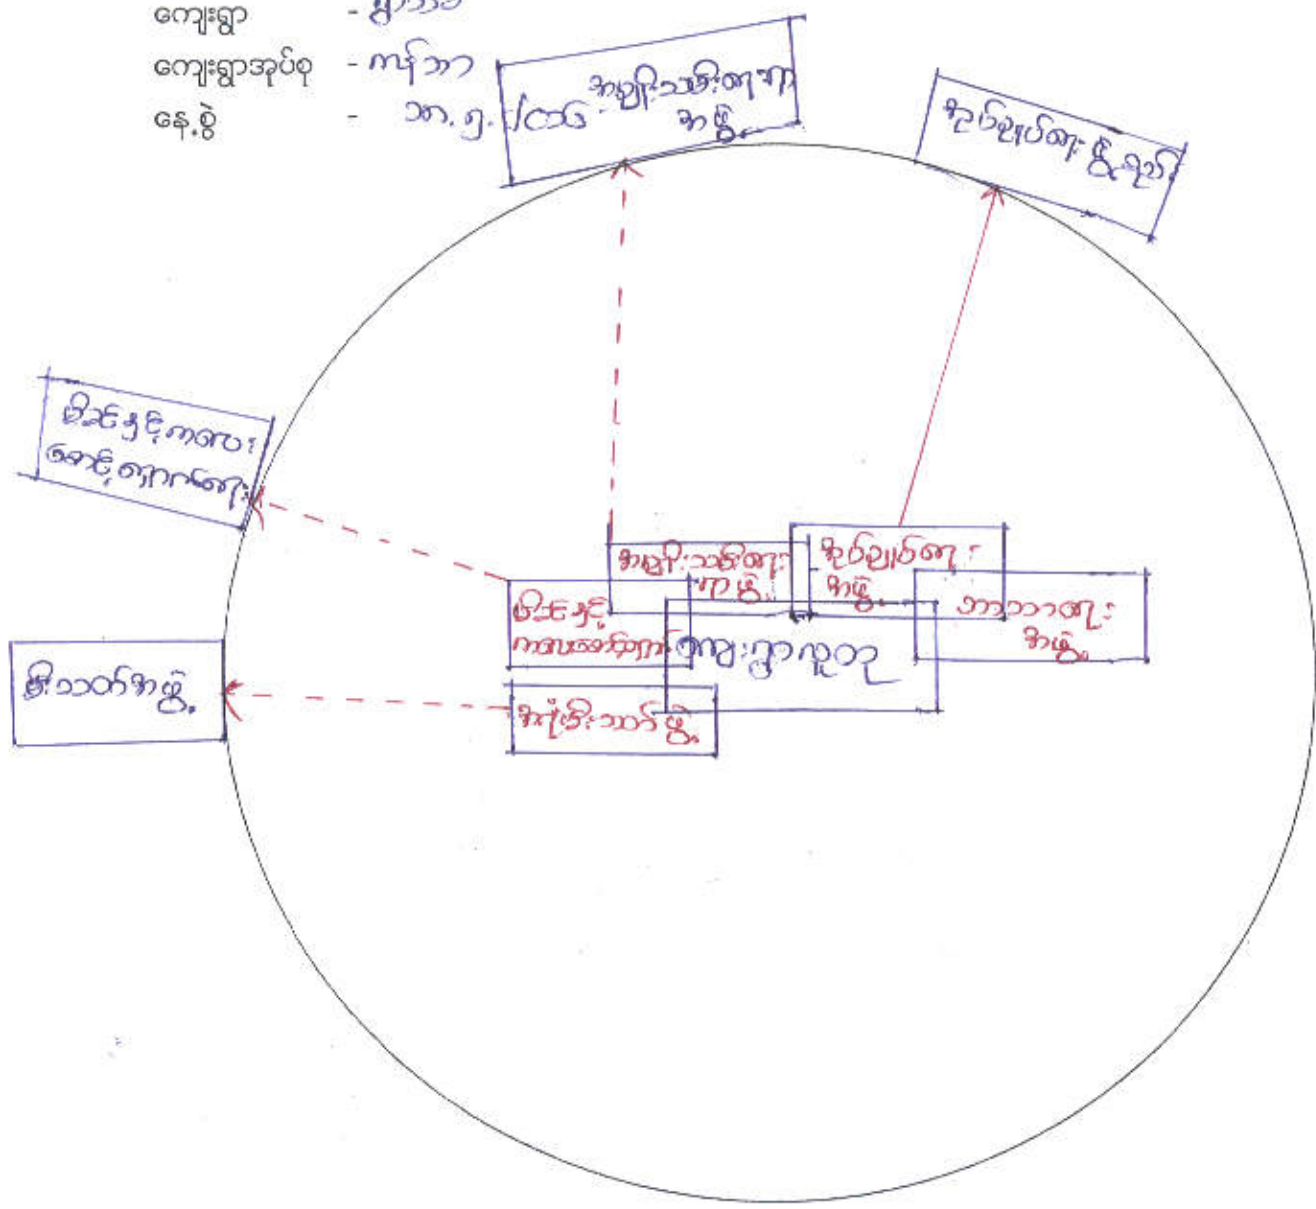 ကျေးရွာ -
ကျေးရွာအုပ်စု - ကန်ဘာ
နေ့စွဲ -
အမျိုးသမီးရေးရာ
အဖွဲ့
အုပ်ချုပ်ရေး မှူးရုံး
မိခင်နှင့်ကလေး
စောင့်ရှောက်ရေး
မီးသတ်အဖွဲ့
အမျိုးသမီးရေး
ရာ ဖွဲ့
အုပ်ချုပ်ရေး
အဖွဲ့
ဘာသာရေး
အဖွဲ့
မိခင်နှင့်
ကလေးစောင့်ရှောက်
ကျေးရွာလူထု
အရံမီးသတ် ဖွဲ့